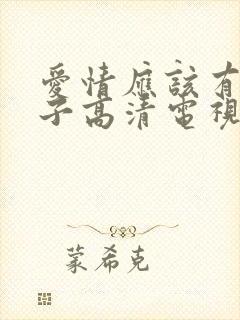 愛情應該有
子高清電視
蒙希克